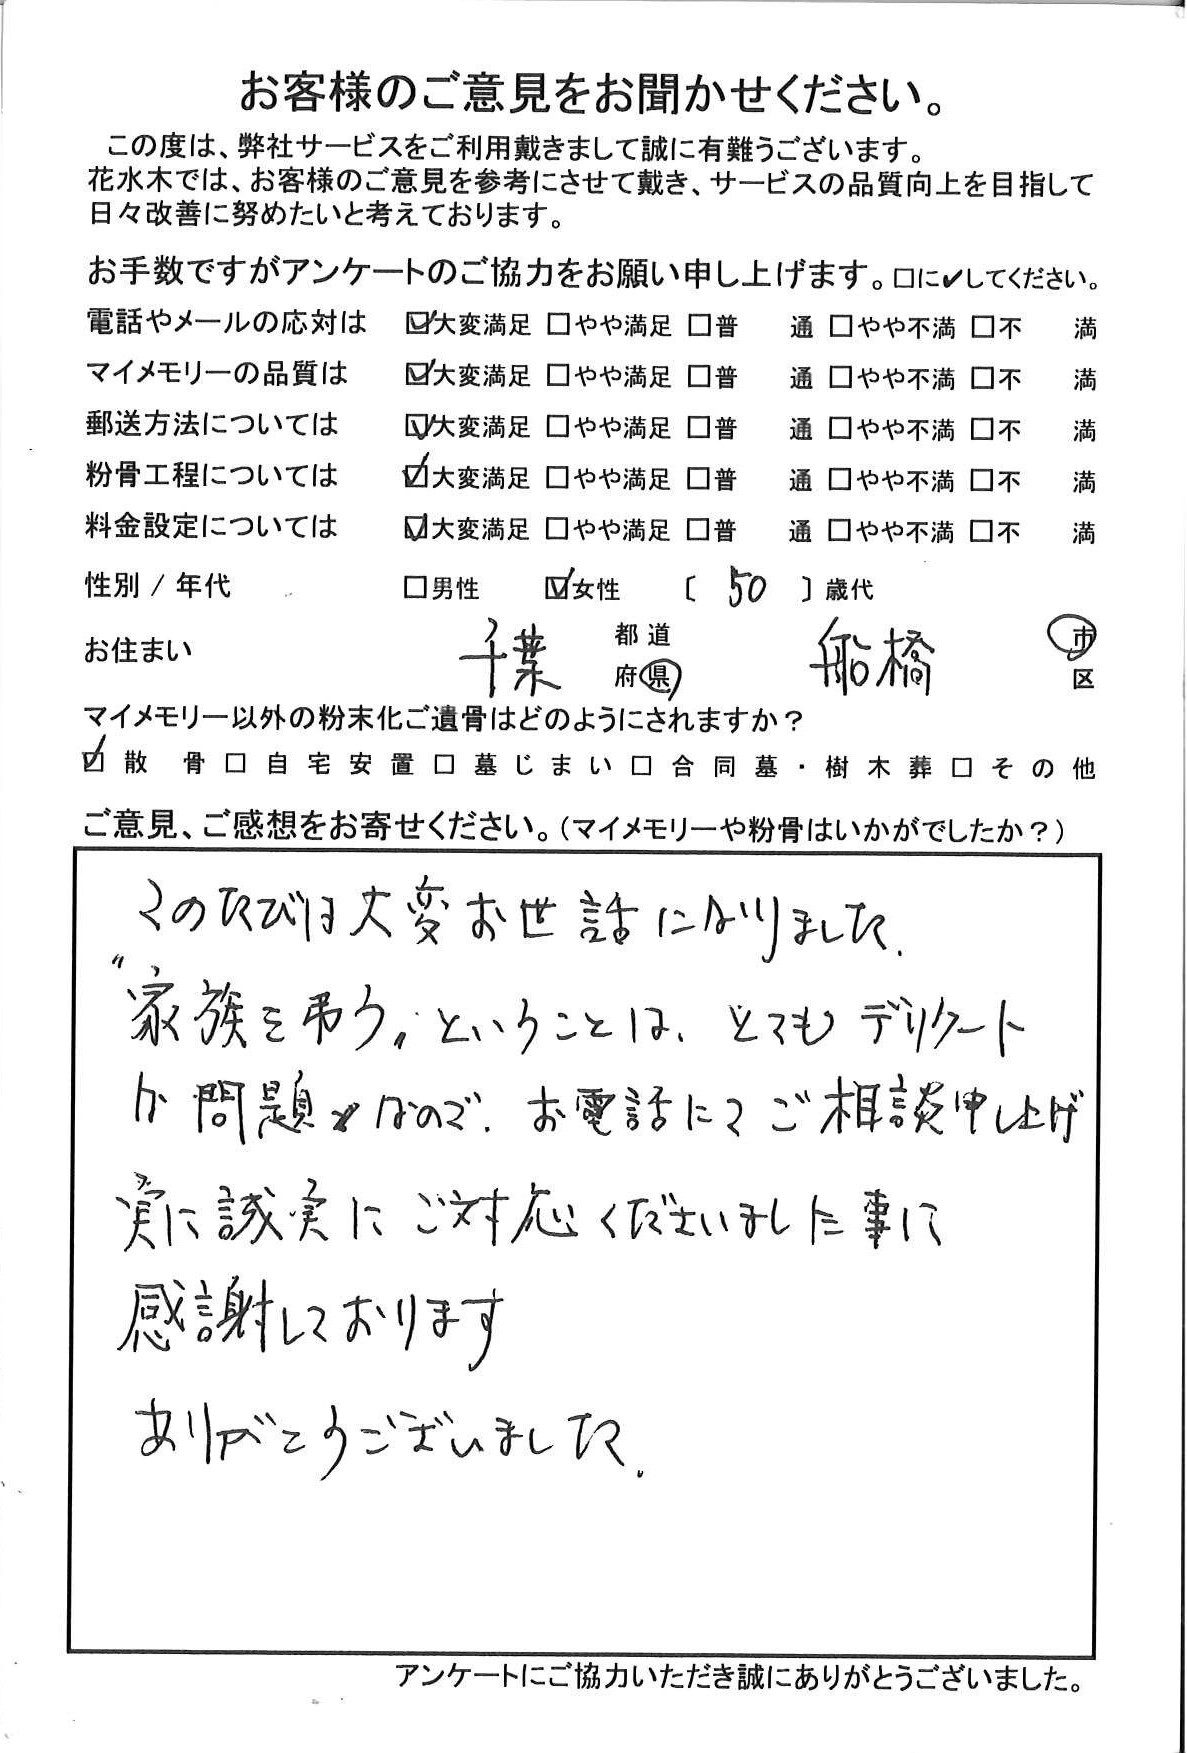 お客様のご意見をお聞かせください。
この度は、弊社サービスをご利用戴きまして誠に有難うございます。
花水木では、お客様のご意見を参考にさせて戴き、サービスの品質向上を目指して
日々改善に努めたいと考えております。
お手数ですがアンケートのご協力をお願い申し上げます。□に✔してください。
電話やメールの応対は ☑大変満足 □やや満足 □普 通 □やや不満 □不 満
マイメモリーの品質は ☑大変満足 □やや満足 □普 通 □やや不満 □不 満
郵送方法については ☑大変満足 □やや満足 □普 通 □やや不満 □不 満
粉骨工程については ☑大変満足 □やや満足 □普 通 □やや不満 □不 満
料金設定については ☑大変満足 □やや満足 □普 通 □やや不満 □不 満
性別 / 年代 □男性 ☑女性 〔 50 〕歳代
お住まい 千葉 都道府県 船橋 市区
マイメモリー以外の粉末化ご遺骨はどのようにされますか？
☑散 骨□自宅安置□墓じまい□合同墓・樹木葬□その他
ご意見、ご感想をお寄せください。（マイメモリーや粉骨はいかがでしたか？）
このたびは大変お世話になりました.
“家族を弔う„ということは、とてもデリケート
な問題なので、お電話にてご相談申し上げ
実に誠実にご対応くださいました事に
感謝しております
ありがとうございました.
アンケートにご協力いただき誠にありがとうございました。